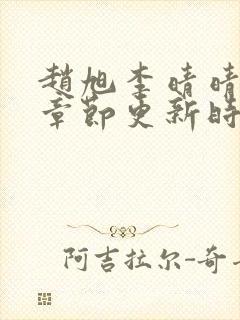 趙旭李晴晴
章節更新時
阿吉拉尔-奇